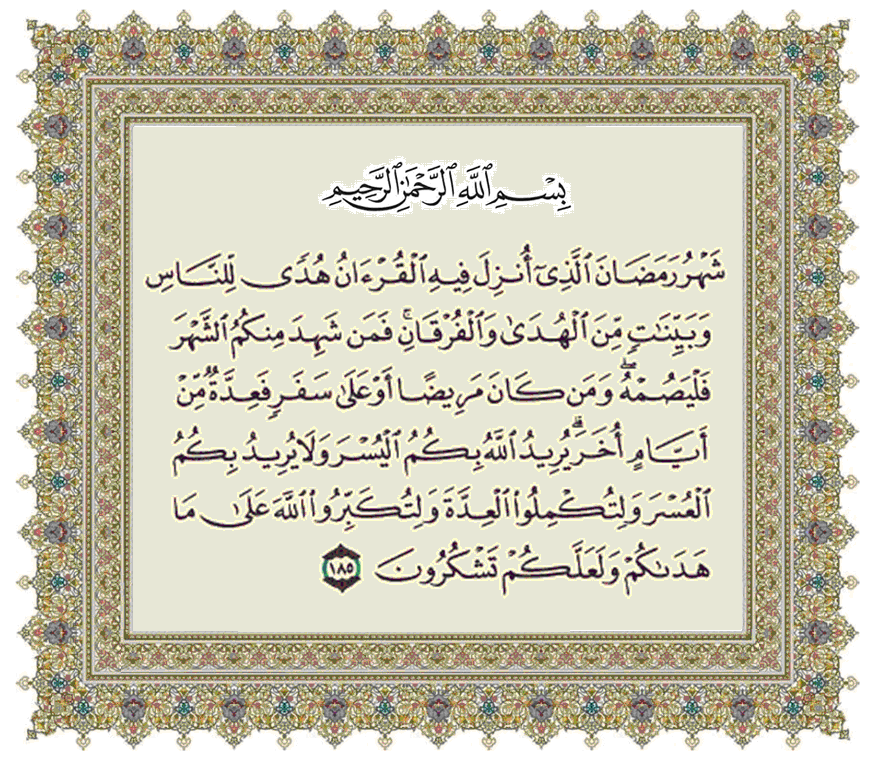 بِسْمِ ٱللَّهِ ٱلرَّحْمَٰنِ ٱلرَّحِيمِ
شَهْرُ رَمَضَانَ ٱلَّذِىٓ أُنزِلَ فِيهِ ٱلْقُرْءَانُ هُدًى لِّلنَّاسِ
وَبَيِّنَٰتٍ مِّنَ ٱلْهُدَىٰ وَٱلْفُرْقَانِ ۚ فَمَن شَهِدَ مِنكُمُ ٱلشَّهْرَ
فَلْيَصُمْهُ ۖ وَمَن كَانَ مَرِيضًا أَوْ عَلَىٰ سَفَرٍ فَعِدَّةٌ مِّنْ
أَيَّامٍ أُخَرَ ۗ يُرِيدُ ٱللَّهُ بِكُمُ ٱلْيُسْرَ وَلَا يُرِيدُ بِكُمُ
ٱلْعُسْرَ وَلِتُكْمِلُوا۟ ٱلْعِدَّةَ وَلِتُكَبِّرُوا۟ ٱللَّهَ عَلَىٰ مَا
هَدَىٰكُمْ وَلَعَلَّكُمْ تَشْكُرُونَ ١٨٥